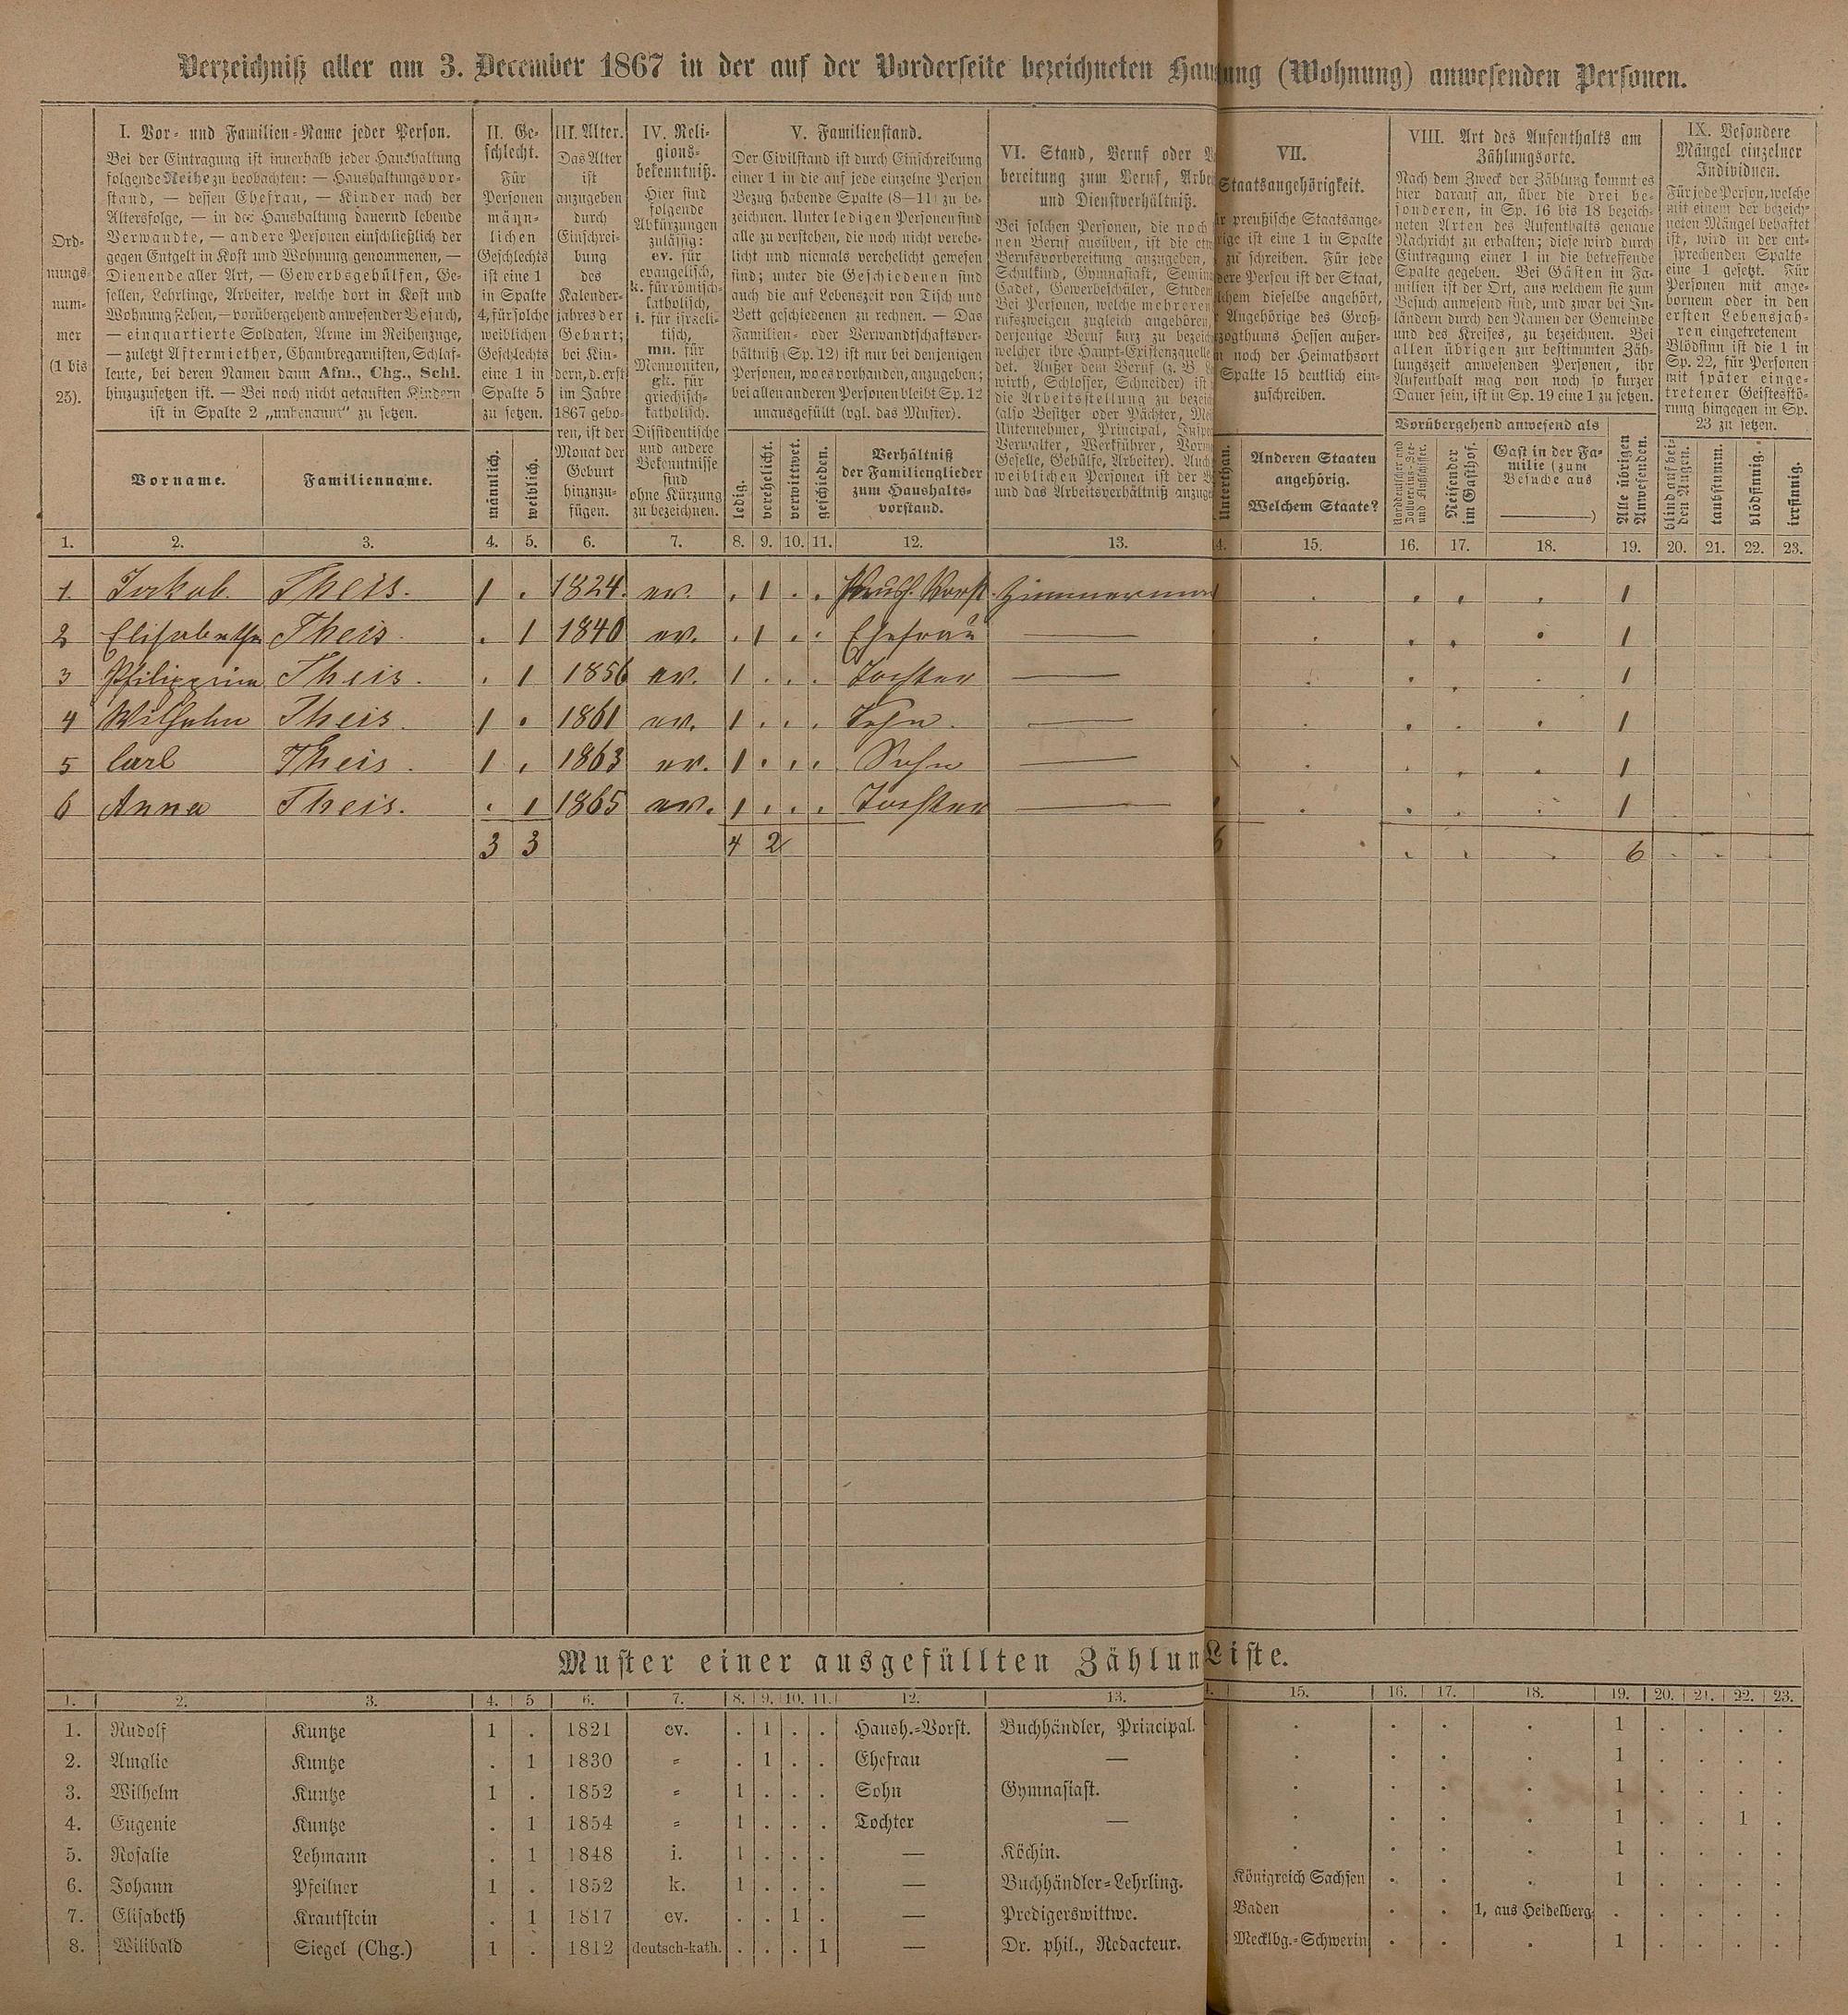 Verzeichniß aller am 3. December 1867 in der auf der Vorderseite bezeichneten Haus ung (Wohnung) anwesenden Personen.
Ord-
nungs-
num-
mer
(1 bis
25).
I. Vor- und Familien-Name jeder Person.
Bei der Eintragung ist innerhalb jeder Haushaltung
folgende Reihe zu beobachten: — Haushaltungsvor-
stand, — dessen Ehefrau, — Kinder nach der
Altersfolge, — in der Haushaltung dauernd lebende
Verwandte, — andere Personen einschließlich der
gegen Entgelt in Kost und Wohnung genommenen, —
Dienende aller Art, — Gewerbsgehülfen, Ge-
sellen, Lehrlinge, Arbeiter, welche dort in Kost und
Wohnung stehen, — vorübergehend anwesender Besuch,
— einquartierte Soldaten, Arme im Reihenzuge,
— zuletzt Aftermiether, Chambregarnisten, Schlaf-
leute, bei deren Namen dann Afm., Chg., Schl.
hinzuzusetzen ist. — Bei noch nicht getauften Kindern
ist in Spalte 2 „unbenannt“ zu setzen.
Vorname.
Familienname.
II. Ge-
schlecht.
Für
Personen
männ-
lichen
Geschlechts
ist eine 1
in Spalte
4, für solche
weiblichen
Geschlechts
eine 1 in
Spalte 5
zu setzen.
männlich.
weiblich.
III. Alter.
Das Alter
ist
anzugeben
durch
Einschrei-
bung
des
Kalender-
jahres der
Geburt;
bei Kin-
dern, d. erst
im Jahre
1867 gebo-
ren, ist der
Monat der
Geburt
hinzuzu-
fügen.
IV. Reli-
gions-
bekenntniß.
Hier sind
folgende
Abkürzungen
zulässig:
ev. für
evangelisch,
k. für römisch-
katholisch,
i. für israeli-
tisch,
mn. für
Mennoniten,
gk. für
griechisch-
katholisch.
Dissidentische
und andere
Bekenntnisse
sind
ohne Kürzung
zu bezeichnen.
V. Familienstand.
Der Civilstand ist durch Einschreibung
einer 1 in die auf jede einzelne Person
Bezug habende Spalte (8—11) zu be-
zeichnen. Unter ledigen Personen sind
alle zu verstehen, die noch nicht vereh-
licht und niemals verehelicht gewesen
sind; unter die Geschiedenen sind
auch die auf Lebenszeit von Tisch und
Bett geschiedenen zu rechnen. — Das
Familien- oder Verwandtschaftsver-
hältniß (Sp. 12) ist nur bei denjenigen
Personen, wo es vorhanden, anzugeben;
bei allen anderen Personen bleibt Sp. 12
unausgefüllt (vgl. das Muster).
ledig.
verehelicht.
verwittwet.
geschieden.
Verhältniß
der Familienglieder
zum Haushalts-
vorstand.
VI. Stand, Beruf oder
bereitung zum Beruf, Arbe
und Dienstverhältniß.
Bei solchen Personen, die noch
nen Beruf ausüben, ist die etw
Berufsvorbereitung anzugeben,
Schulkind, Gymnasiast, Semin
Cadet, Gewerbeschüler, Studen
Bei Personen, welche mehreren
rufszweigen zugleich angehören,
derjenige Beruf kurz zu bezeich
welcher ihre Haupt-Existenzquelle
det. Außer dem Beruf (z. B.
wirth, Schlosser, Schneider) ist
die Arbeitsstellung zu bezeich
(also Besitzer oder Pächter, Me
Unternehmer, Principal, Inspe
Verwalter, Werkführer, Vorm
Geselle, Gehülfe, Arbeiter). Auch
weiblichen Personen ist der B
und das Arbeitsverhältniß anzuge
VII.
Staatsangehörigkeit.
r preußische Staatsange-
rige ist eine 1 in Spalte
zu schreiben. Für jede
dere Person ist der Staat,
lchem dieselbe angehört,
Angehörige des Groß-
zogthums Hessen außer-
noch der Heimathsort
Spalte 15 deutlich ein-
zuschreiben.
Unterthan.
Anderen Staaten
angehörig.
Welchem Staate?
VIII. Art des Aufenthalts am
Zählungsorte.
Nach dem Zweck der Zählung kommt es
hier darauf an, über die drei be-
sonderen, in Sp. 16 bis 18 bezeich-
neten Arten des Aufenthalts genaue
Nachricht zu erhalten; diese wird durch
Eintragung einer 1 in die betreffende
Spalte gegeben. Bei Gästen in Fa-
milien ist der Ort, aus welchem sie zum
Besuch anwesend sind, und zwar bei In-
ländern durch den Namen der Gemeinde
und des Kreises, zu bezeichnen. Bei
allen übrigen zur bestimmten Zäh-
lungszeit anwesenden Personen, ihr
Aufenthalt mag von noch so kurzer
Dauer sein, ist in Sp. 19 eine 1 zu setzen.
Vorübergehend anwesend als
Norddeutscher und
Zollvereins-See-
und Flußschiffer.
Reisender
im Gasthof.
Gast in der Fa-
milie (zum
Besuche aus
———)
Alle übrigen
Anwesenden.
IX. Besondere
Mängel einzelner
Individuen.
Für jede Person, welche
mit einem der bezeich-
neten Mängel behaftet
ist, wird in der ent-
sprechenden Spalte
eine 1 gesetzt. Für
Personen mit ange-
bornem oder in den
ersten Lebensjah-
ren eingetretenem
Blödsinn ist die 1 in
Sp. 22, für Personen
mit später einge-
tretener Geistesstö-
rung hingegen in Sp.
23 zu setzen.
blind auf bei-
den Augen.
taubstumm.
blödsinnig.
irrsinnig.
1. 2. 3. 4. 5. 6. 7. 8. 9. 10. 11. 12. 13. 4. 15. 16. 17. 18. 19. 20. 21. 22. 23.
1. Jakob. Theis. 1 . 1824. ev. . 1 . . Haush. Vorst. Zimmermann 1 . . . . 1
2 Elisabetha Theis . 1 1840 ev. . 1 . . Ehefrau — . . . . 1
3 Philippina Theis . 1 1856 ev. 1 . . . Tochter — . . . . 1
4 Wilhelm Theis 1 . 1861 ev. 1 . . . Sohn — . . . . 1
5 Carl Theis 1 . 1863 ev. 1 . . . Sohn — . . . . 1
6 Anna Theis. . 1 1865 ev. 1 . . . Tochter — . . . . 1
3 3 4 2 6 . . . 6 . . . .
Muster einer ausgefüllten Zählun Liste.
1. 2. 3. 4. 5 6. 7. 8. 9. 10. 11. 12. 13. 15. 16. 17. 18. 19. 20. 21. 22. 23.
1. Rudolf Kuntze 1 . 1821 ev. . 1 . . Haush.-Vorst. Buchhändler, Principal. . . . . 1 . . . .
2. Amalie Kuntze . 1 1830 = . 1 . . Ehefrau — . . . . 1 . . . .
3. Wilhelm Kuntze 1 . 1852 = 1 . . . Sohn Gymnasiast. . . . . 1 . . . .
4. Eugenie Kuntze . 1 1854 = 1 . . . Tochter — . . . . 1 . . 1 .
5. Rosalie Lehmann . 1 1848 i. 1 . . . — Köchin. . . . . 1 . . . .
6. Johann Pfeilner 1 . 1852 k. 1 . . . — Buchhändler-Lehrling. Königreich Sachsen . . . 1 . . . .
7. Elisabeth Krautstein . 1 1817 ev. . . 1 . — Predigerswittwe. Baden . . 1, aus Heidelberg. . . . . .
8. Wilibald Siegel (Chg.) 1 . 1812 deutsch-kath. . . . 1 — Dr. phil., Redacteur. Mecklbg.-Schwerin . . . 1 . . . .